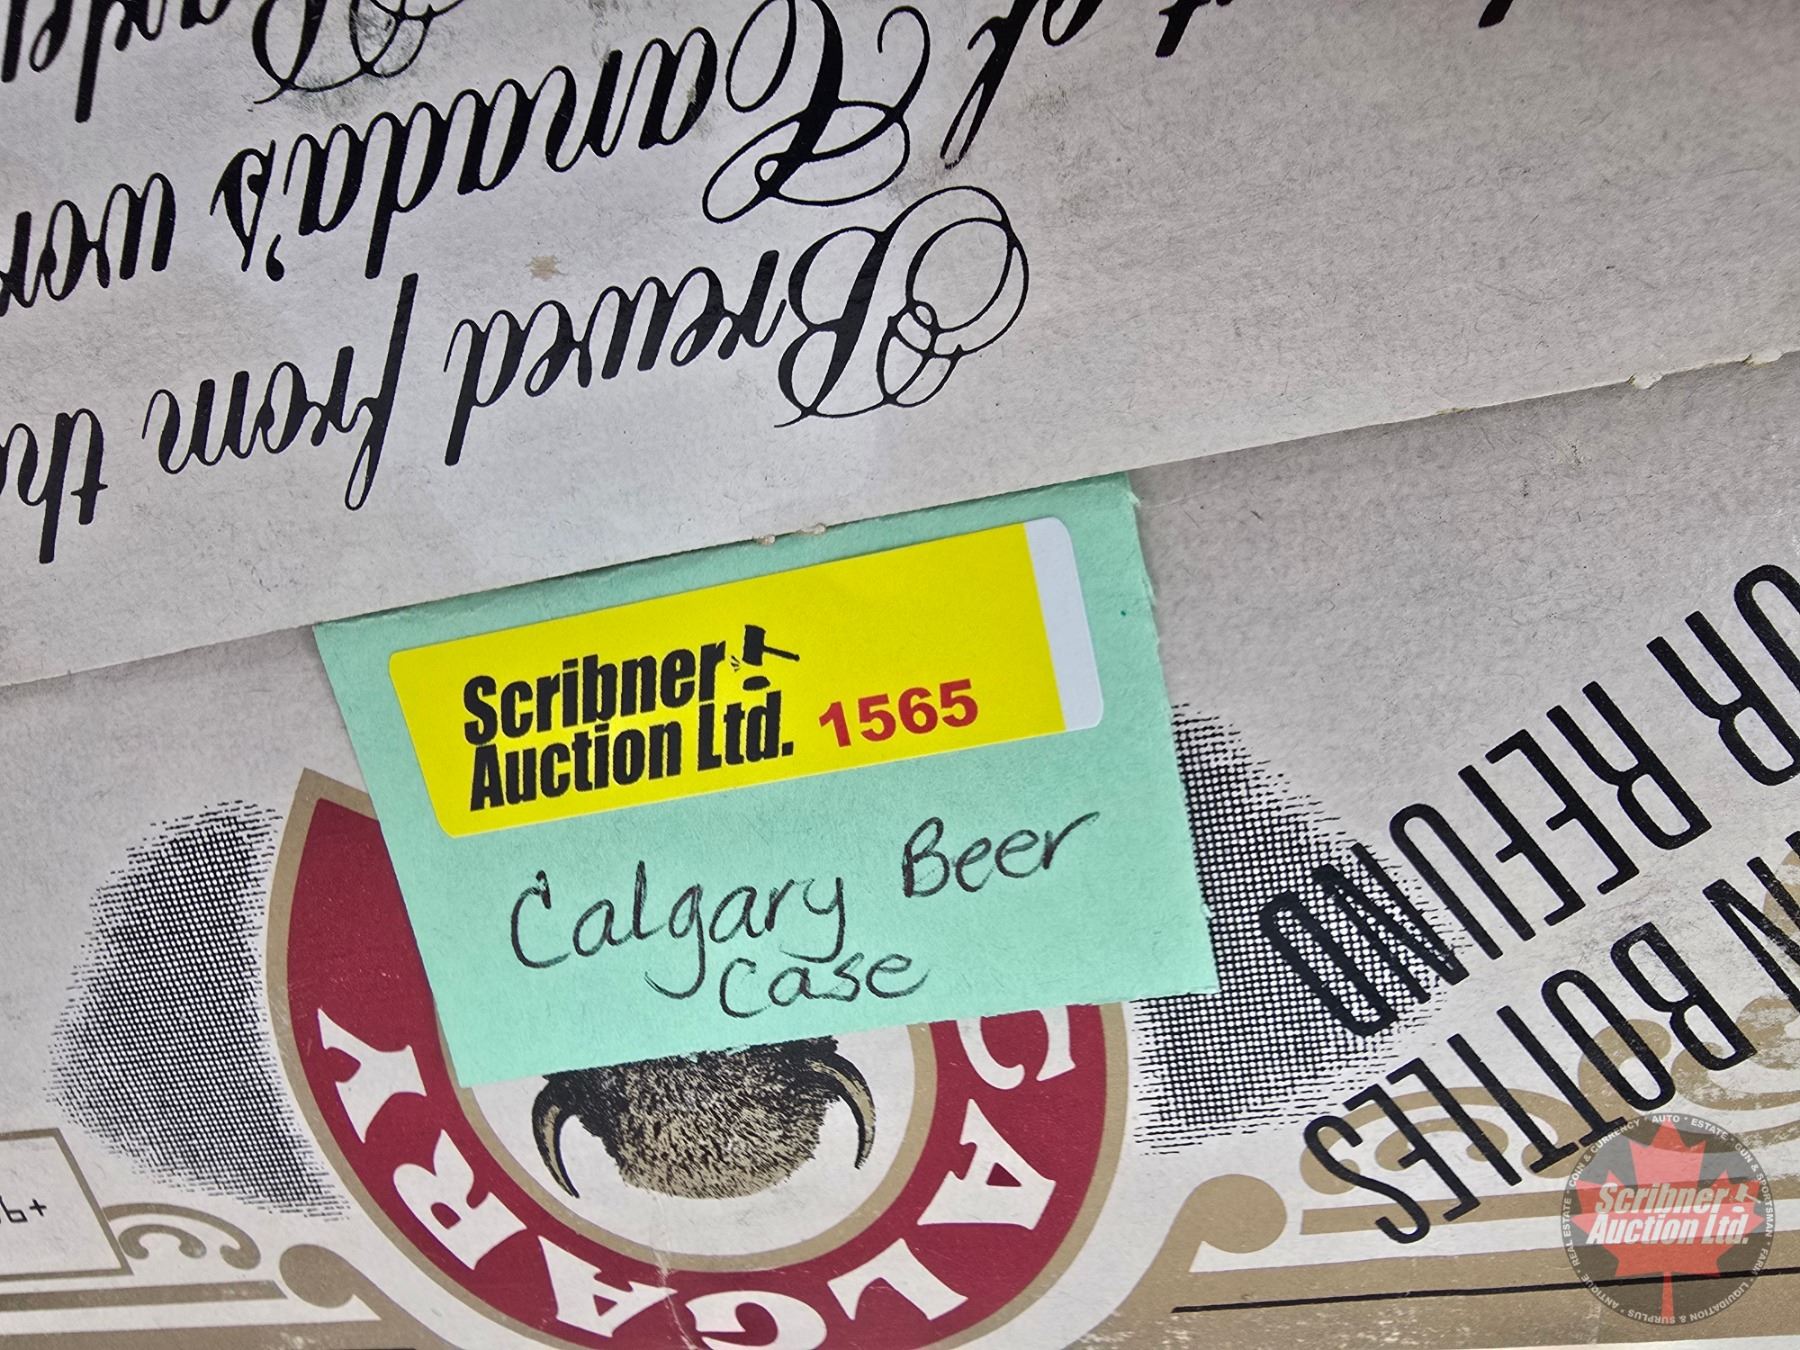 Brewed from the
Canada's
Scribner
Auction Ltd. 1565
Calgary Beer
Case
CALGARY
BOTTLES
OR REFUND
Scribner
Auction Ltd.
AUTO • ESTATE • GUN & SPORTSMAN • FARM • LIQUIDATION & SURPLUS • ANTIQUE • REAL ESTATE • COIN & CURRENCY